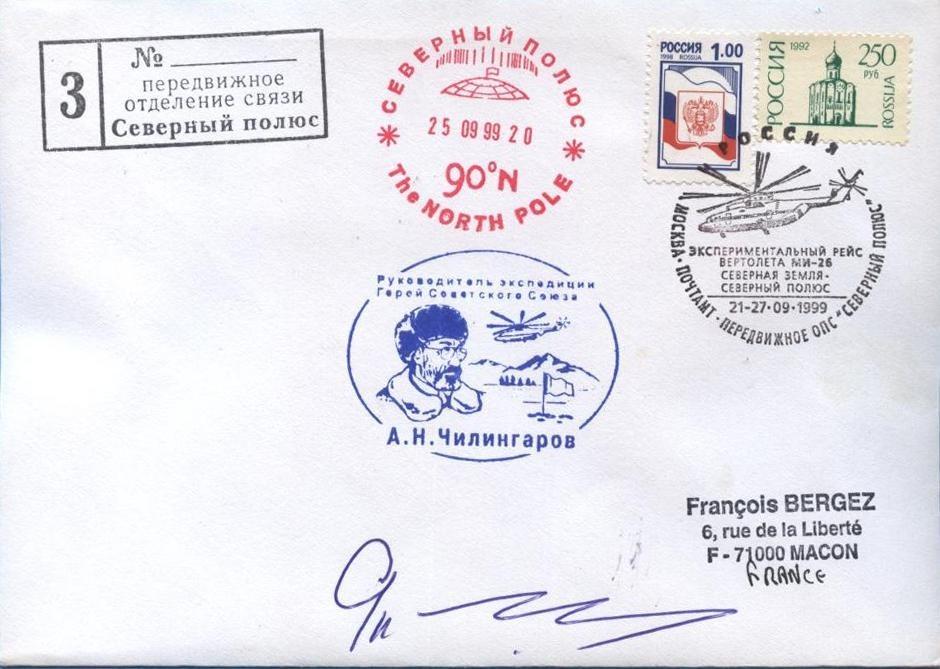 №
3
передвижное
отделение связи
Северный полюс
СЕВЕРНЫЙ ПОЛЮС
25 09 99 20
90°N
The NORTH POLE
РОССИЯ 1.00
1998 ROSSIJA
РОССИЯ
1992
250
РУБ
ROSSIJA
РОССИЯ
ЭКСПЕРИМЕНТАЛЬНЫЙ РЕЙС
ВЕРТОЛЕТА МИ-26
СЕВЕРНАЯ ЗЕМЛЯ-
СЕВЕРНЫЙ ПОЛЮС
21-27·09·1999
МОСКВА·ПОЧТАМТ·ПЕРЕДВИЖНОЕ ОПС "СЕВЕРНЫЙ ПОЛЮС"
Руководитель экспедиции
Герой Советского Союза
А.Н.Чилингаров
François BERGEZ
6, rue de la Liberté
F - 71000 MACON
FRANCE